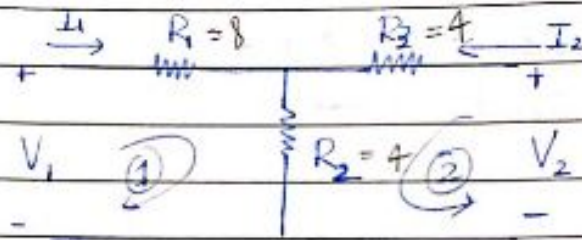 I₁ R₁ = 8 R₃ = 4 I₂
+ +
V₁ ① R₂ = 4 ② V₂
- -